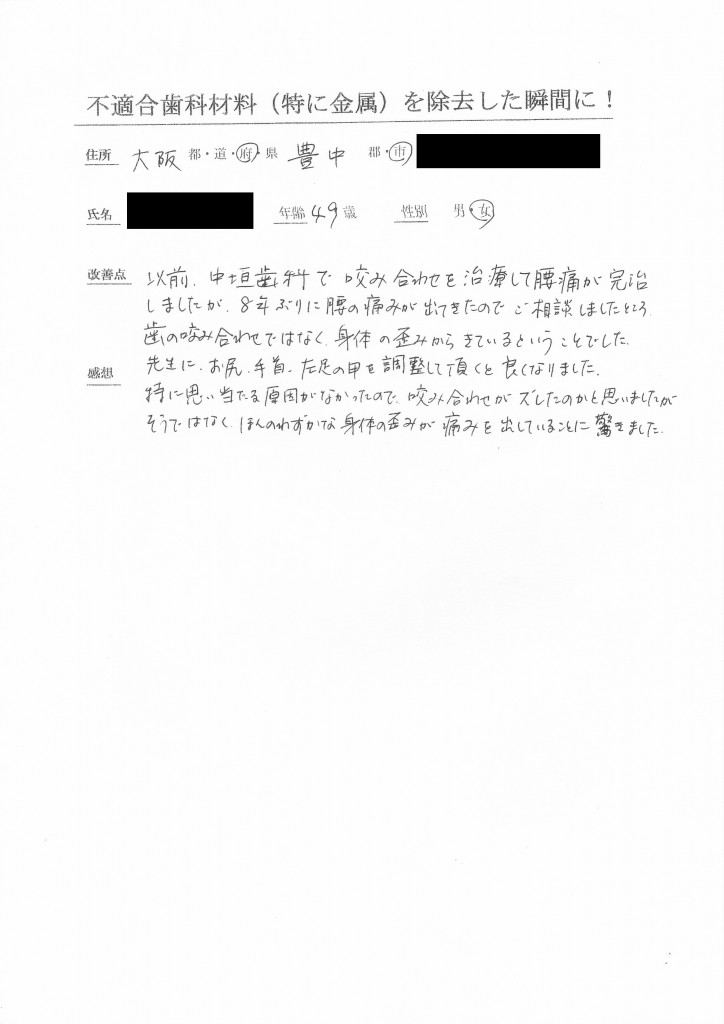 不適合歯科材料（特に金属）を除去した瞬間に！
住所 大阪 都・道・府・県 豊中 郡・市
氏名 年齢 49 歳 性別 男・女
改善点 以前、中垣歯科で咬み合わせを治療して腰痛が完治
しましたが、8年ぶりに腰の痛みが出てきたのでご相談しましたところ
歯の咬み合わせではなく、身体の歪みからきているということでした。
感想 先生に、お尻、手首、左足の甲を調整して頂くと良くなりました。
特に思い当たる原因がなかったので、咬み合わせがズレたのかと思いましたが
そうではなく、ほんのわずかな身体の歪みが痛みを出していることに驚きました。